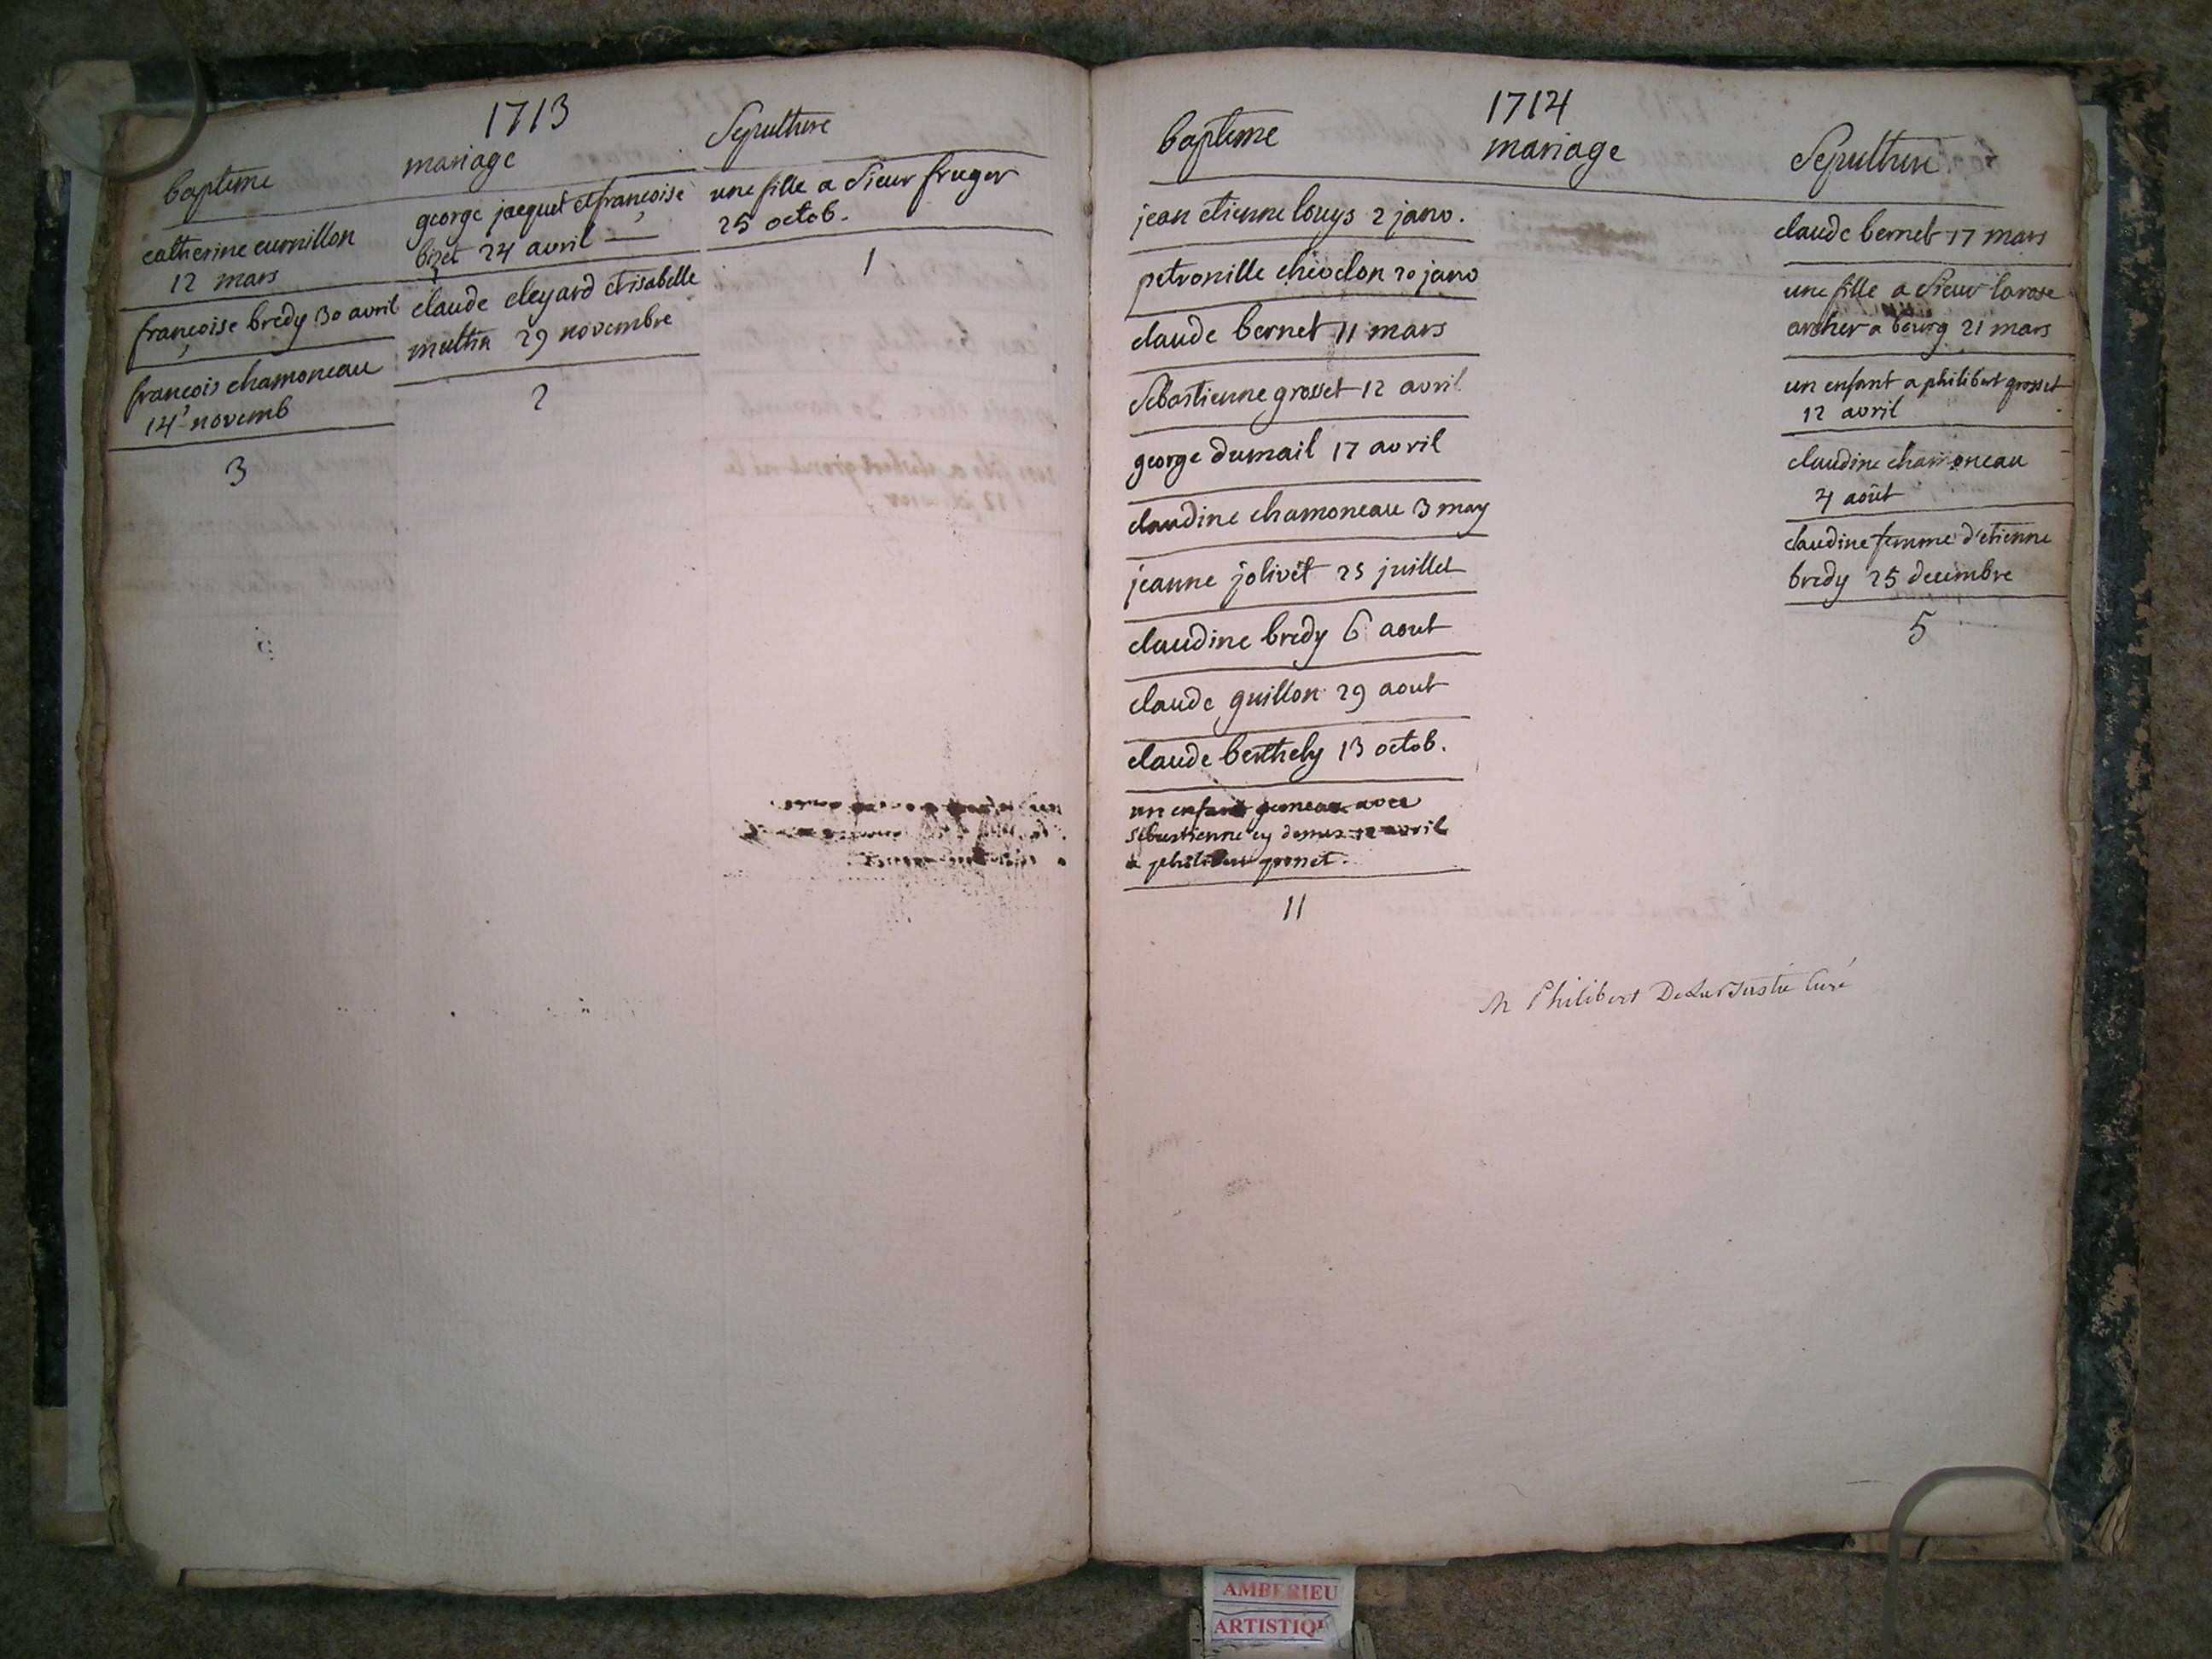 1713
bapteme
mariage
Sepulthure
catherine cumillon
12 mars
françoise bredy 30 avril
françois chamoneau
14 novemb
3
george jacquet et françoise
bizet 24 avril
claude cleyard et isabelle
muthin 29 novembre
2
une fille a Sieur fruger
25 octob.
1
1714
bapteme
mariage
Sepulthure
jean etienne louys 2 janv.
petronille chevdon 20 janv
claude bernet 11 mars
Sebastienne grosset 12 avril
george dumail 17 avril
claudine chamoneau 3 may
jeanne jolivet 25 juillet
claudine bredy 6 aout
claude guillon 29 aout
claude berthely 13 octob.
un enfant gemeau avec
Sebastienne cy dessus 12 avril
a philibert grosset.
11
claude bernet 17 mars
une fille a Sieur larose
archer a bourg 21 mars
un enfant a philibert grosset
12 avril
claudine chamoneau
4 août
claudine femme d'etienne
bredy 25 decembre
5
Philibert Curé
AMBERIEU
ARTISTIQ